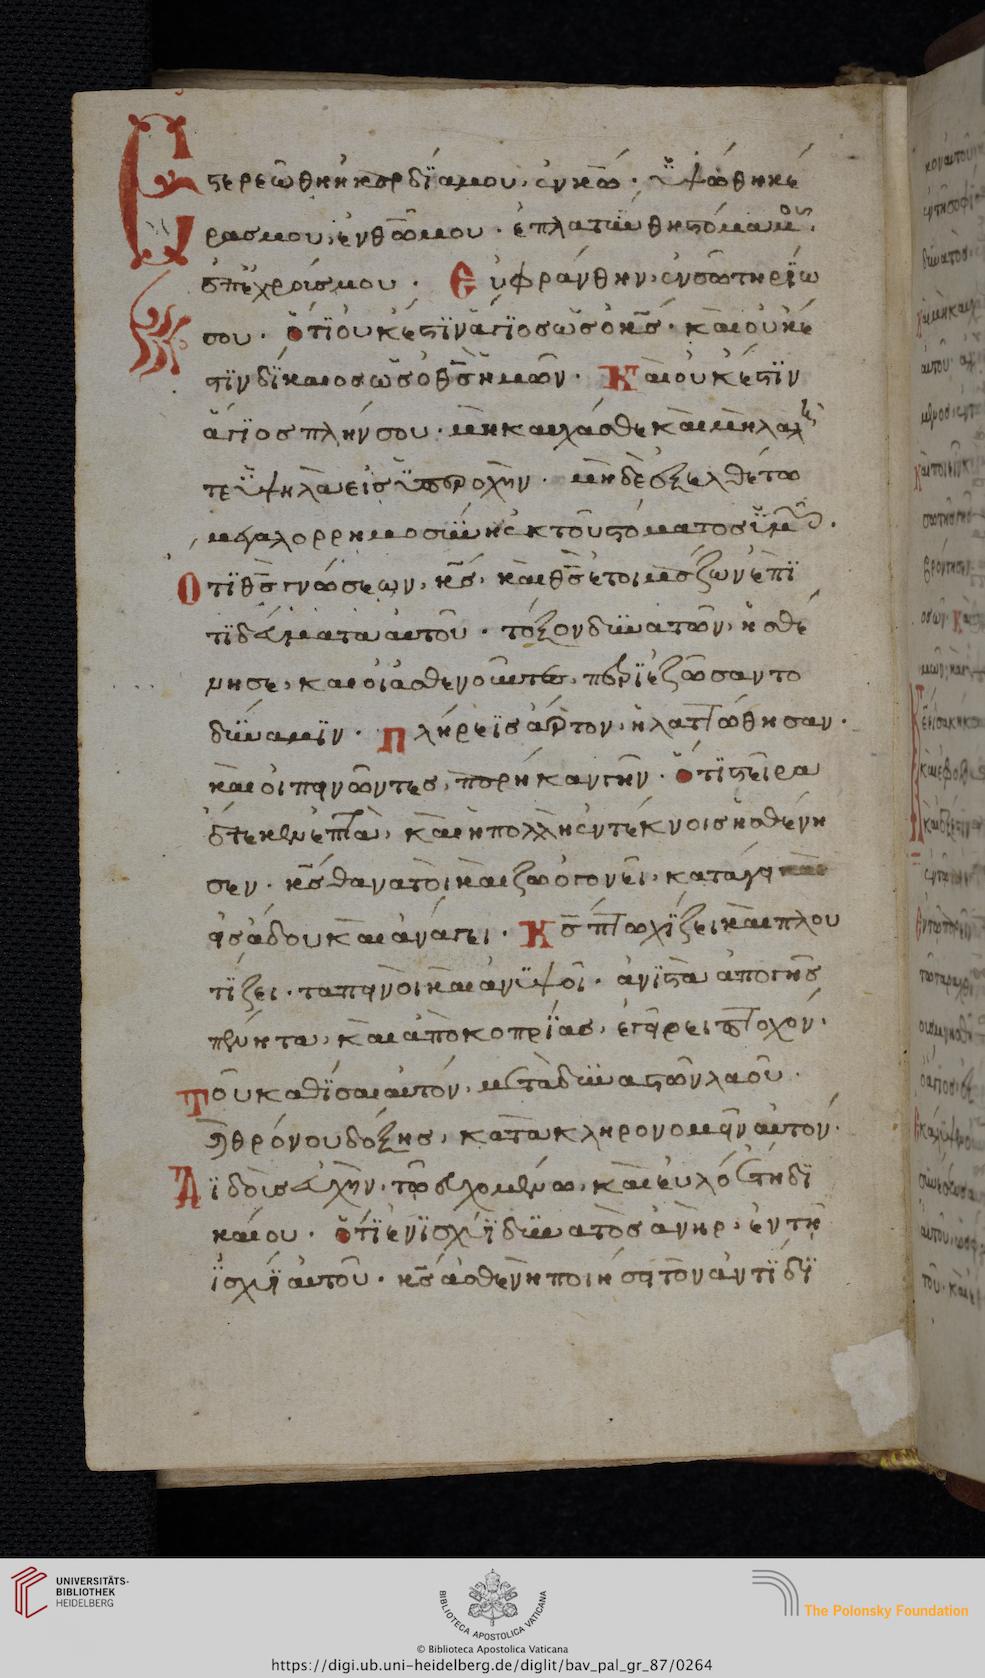 Ἐστερεώθη ἡ καρδία μου ἐν κω· ὑψώθη κέ
ρας μου ἐν θω μου· ἐπλατύνθη στόμα μου
ἐπ' ἐχθρούς μου· Εὐφράνθην ἐν σωτηρίω
σου· ὅτι οὐκ ἔστιν ἅγιος ὡς ὁ κς· καὶ οὐκ ἔ
στιν δίκαιος ὡς ὁ θς ἡμῶν· Καὶ οὐκ ἔστιν
ἅγιος πλήν σου· μὴ καυχάσθε καὶ μὴ λαλεῖ
τε ὑψηλὰ εἰς ὑπεροχὴν· μηδὲ ἐξελθέτω
μεγαλορρημοσύνη ἐκ τοῦ στόματος ὑμῶν·
Ὅτι θς γνώσεων κς· καὶ θς ἑτοιμάζων ἐπι
τιδεύματα αὐτοῦ· τόξον δυνατῶν ἠσθέ
νησε, καὶ οἱ ἀσθενοῦντες περιεζώσαντο
δύναμιν· Πλήρεις ἄρτον ἠλαττώθησαν·
καὶ οἱ πεινῶντες παρῆκαν γῆν· ὅτι στεῖρα
ἔτεκεν ἑπτὰ, καὶ ἡ πολλὴ ἐν τέκνοις ἠσθένη
σεν· κς θανατοῖ καὶ ζωογονεῖ· κατάγει
εἰς ἅδου καὶ ἀνάγει· Κς πτωχίζει καὶ πλου
τίζει· ταπεινοῖ καὶ ἀνυψοῖ· ἀνιστᾶ ἀπο γῆς
πένητα, καὶ ἀπο κοπρίας ἐγείρει πτωχόν·
Τοῦ καθίσαι αὐτόν, μετὰ δυναστῶν λαοῦ·
καὶ θρόνου δόξης, κατακληρονομῶν αὐτόν·
Διδοὺς εὐχὴν τῶ εὐχομένω· καὶ εὐλόγ ἔτη δι
καίου· ὅτι ἐν ἰσχύι δυνατὸς ἀνήρ, ἐν τῆ
ἰσχύι αὐτοῦ· κς ἀσθενῆ ποιήσει τὸν ἀντιδι
UNIVERSITÄTS-
BIBLIOTHEK
HEIDELBERG
BIBLIOTECA APOSTOLICA VATICANA
The Polonsky Foundation
© Biblioteca Apostolica Vaticana
https://digi.ub.uni-heidelberg.de/diglit/bav_pal_gr_87/0264